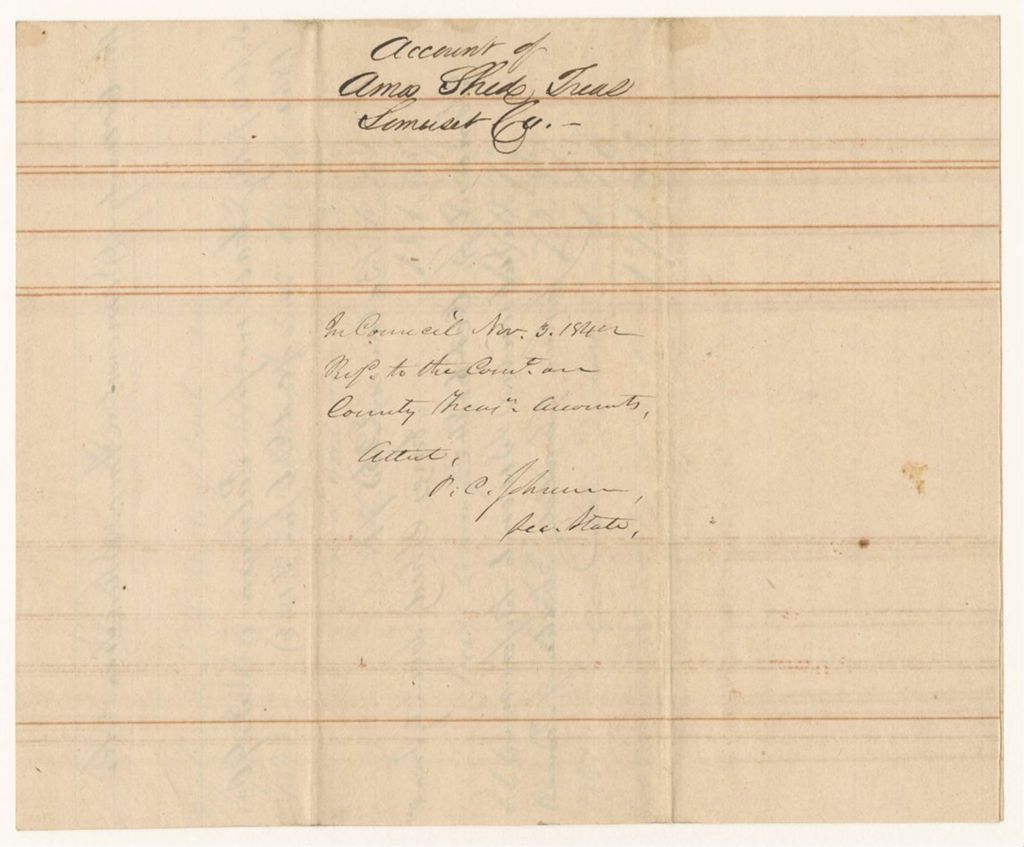 Account of
Amos Shed, Treas
Somerset Co. –
In Council Nov. 3. 1842
Refd. to the Comt. on
County Treasrs. Accounts,
Attest,
P. C. Johnson,
Sec. State,